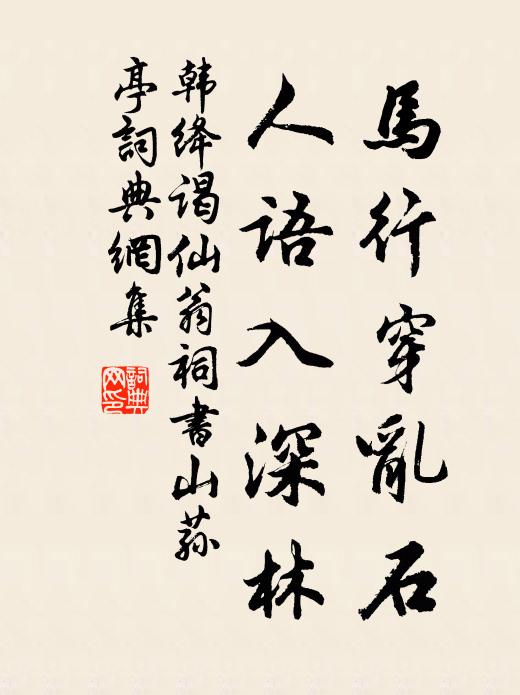 馬行穿亂石
人語入深林
韩绛谒仙翁祠書山蓀
亭詞典網集
詞典
网印